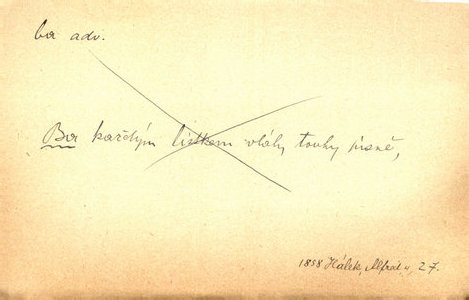 ba adv.
Ba každým lístkem vlály touhy písně,
1858 Hálek, Alfred, 27.